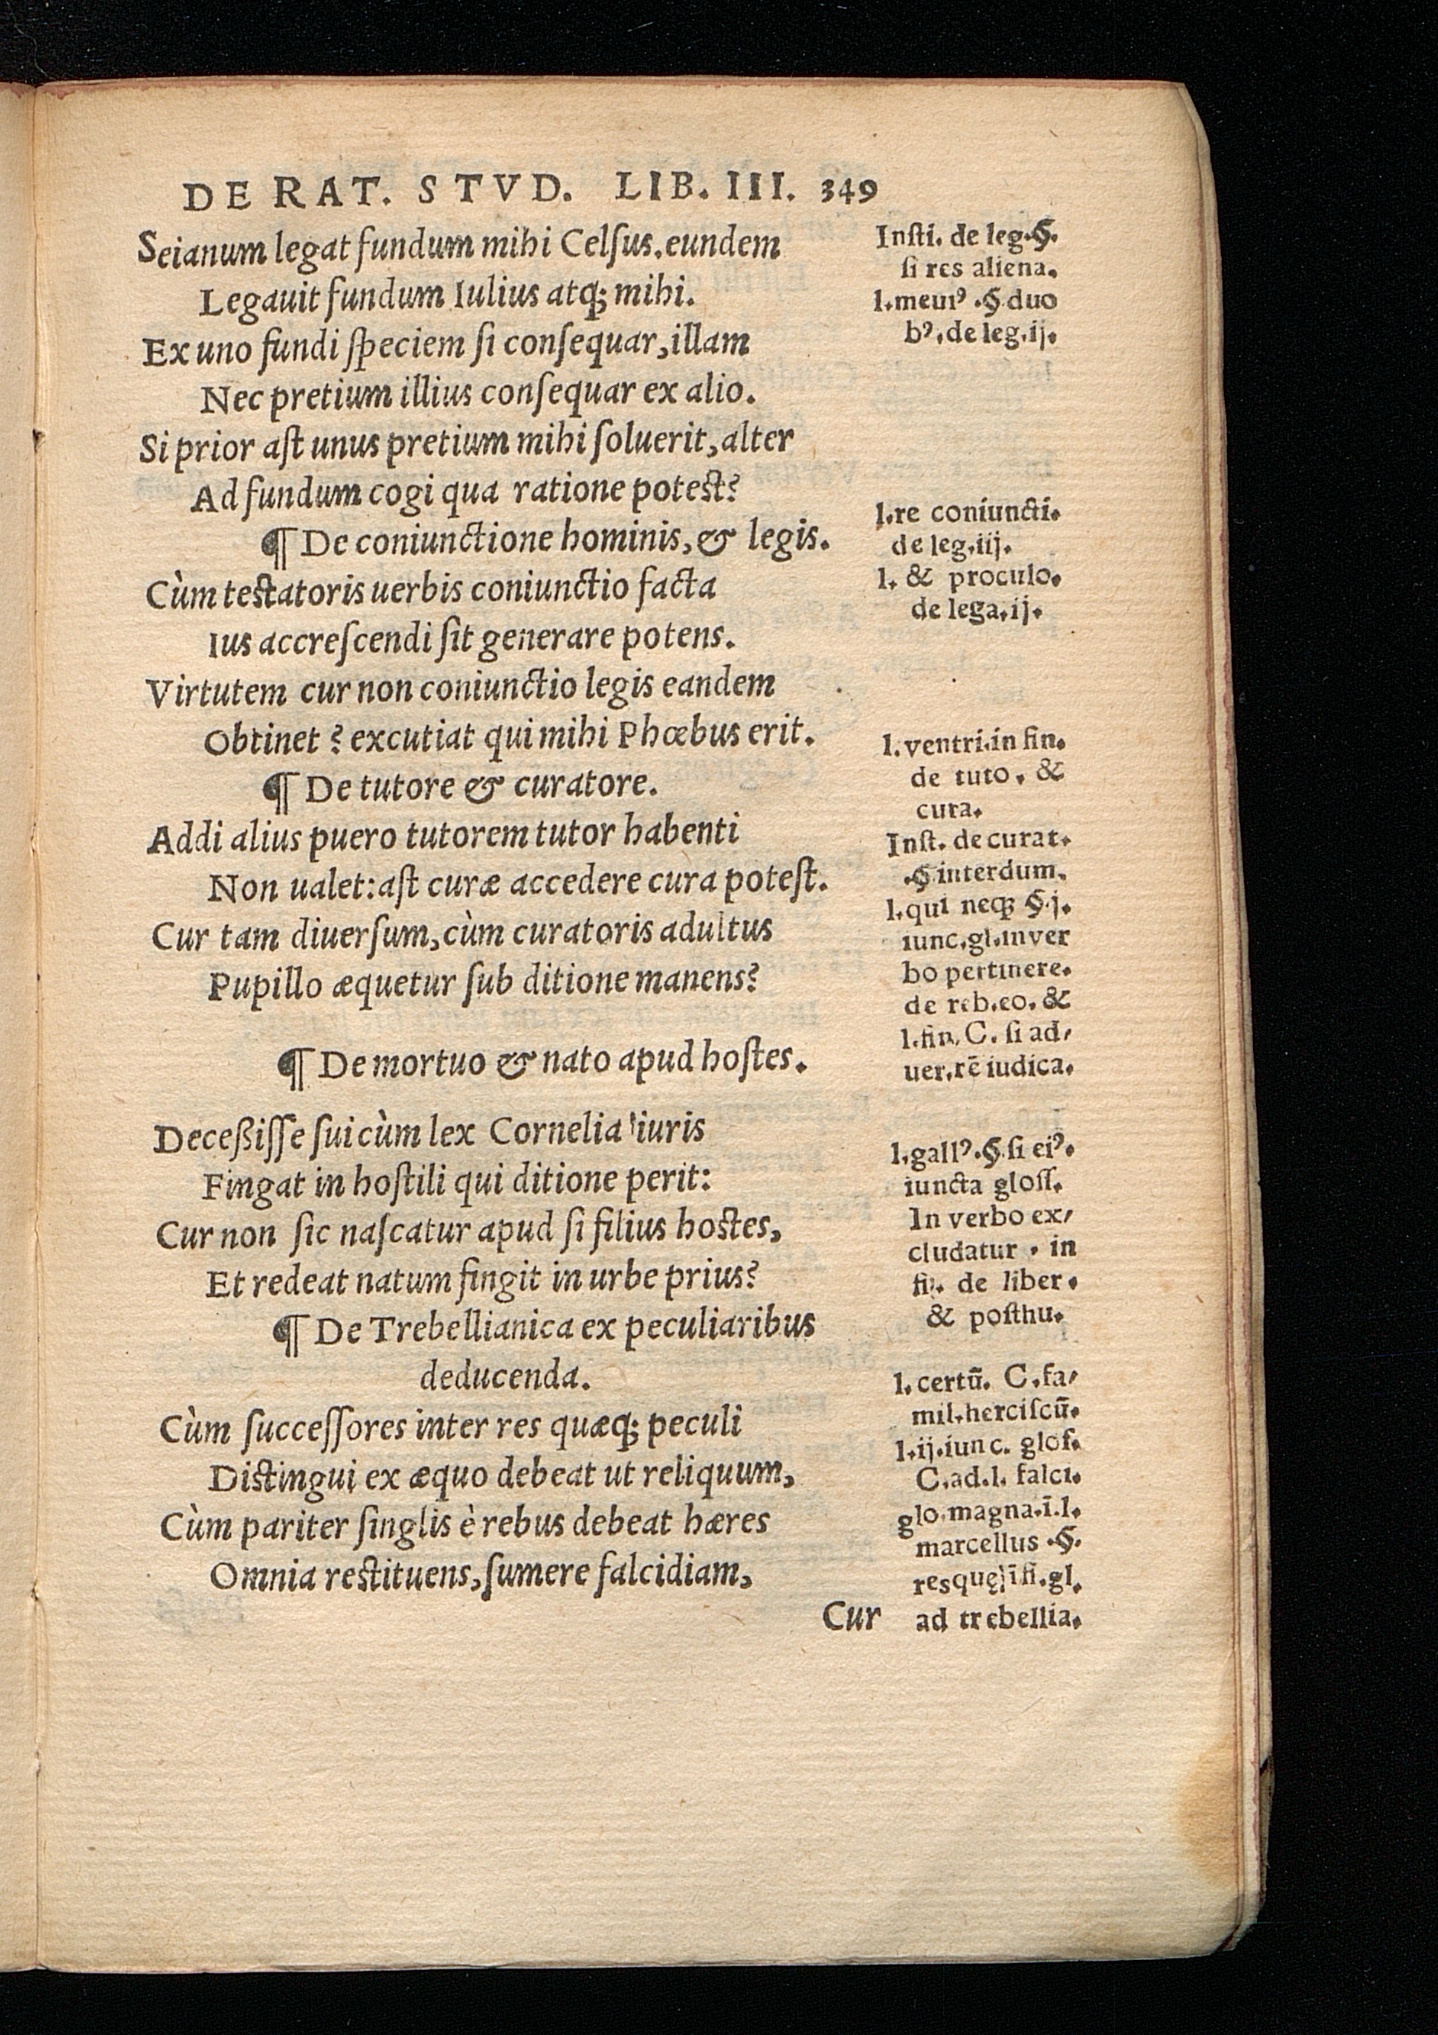 DE RAT. STVD. LIB. III. 349
Seianum legat fundum mihi Celſus, eundem
Legauit fundum Iulius atq; mihi.
Ex uno fundi ſpeciem ſi conſequar, illam
Nec pretium illius conſequar ex alio.
Si prior aſt unus pretium mihi ſoluerit, alter
Ad fundum cogi qua ratione poteſt?
¶ De coniunctione hominis, & legis.
Cùm teſtatoris uerbis coniunctio facta
Ius accreſcendi ſit generare potens.
Virtutem cur non coniunctio legis eandem
Obtinet? excutiat qui mihi Phœbus erit.
¶ De tutore & curatore.
Addi alius puero tutorem tutor habenti
Non ualet: aſt curæ accedere cura poteſt.
Cur tam diuerſum, cùm curatoris adultus
Pupillo æquetur ſub ditione manens?
¶ De mortuo & nato apud hoſtes.
Deceßiſſe ſui cùm lex Cornelia iuris
Fingat in hoſtili qui ditione perit:
Cur non ſic naſcatur apud ſi filius hoſtes,
Et redeat natum fingit in urbe prius?
¶ De Trebellianica ex peculiaribus
deducenda.
Cùm ſucceſſores inter res quæq; peculi
Diſtingui ex æquo debeat ut reliquum,
Cùm pariter ſinglis è rebus debeat hæres
Omnia reſtituens, ſumere falcidiam,
Cur
Inſti. de leg. §.
ſi res aliena.
l. meuiꝰ. § duo
bꝰ. de leg. ij.
l. re coniuncti.
de leg. iij.
l. & proculo.
de lega. ij.
l. ventri. in fin.
de tuto. &
cura.
Inſt. de curat.
. § interdum.
l. qui neq; §. j.
iunc. gl. in ver
bo pertinere.
de reb. eo. &
l. fin. C. ſi ad/
uer. rē iudica.
l. gallꝰ. §. ſi eiꝰ.
iuncta gloſſ.
In verbo ex/
cludatur. in
fi. de liber.
& poſthu.
l. certū. C. fa/
mil. herciſcū.
l. ij. iunc. gloſ.
C. ad. l. falci.
glo. magna. ī. l.
marcellus . §.
res quę, ī fi. gl.
ad trebellia.